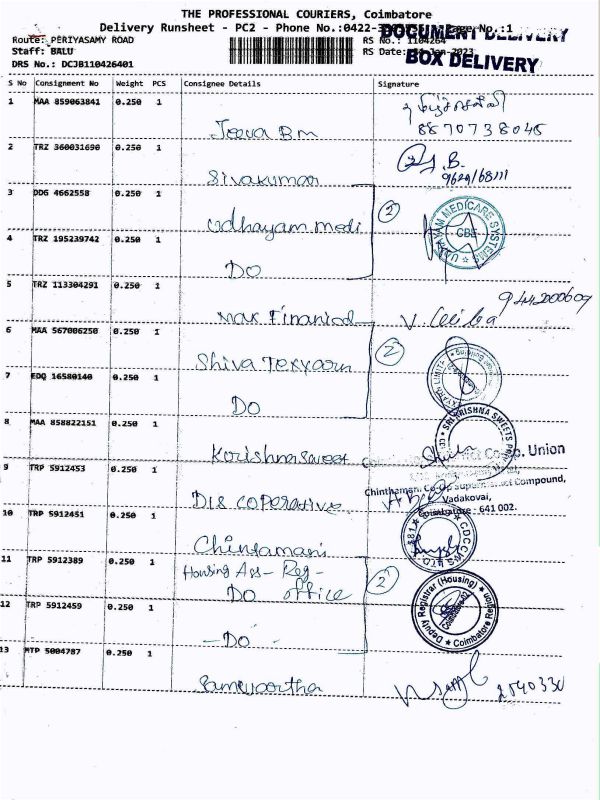 THE PROFESSIONAL COURIERS, Coimbatore
Delivery Runsheet - PC2 - Phone No.:0422- Page No.:1
DOCUMENT DELIVERY
Route: PERIYASAMY ROAD RS No.: 1104264
Staff: BALU RS Date: Jan-2023
BOX DELIVERY
DRS No.: DCJB110426401
S No Consignment No Weight PCS Consignee Details Signature
1 MAA 859063841 0.250 1
Jeeva B m 8870738045
2 TRZ 360031690 0.250 1
Sivakumar
3 DDG 4662558 0.250 1
Udhayam medi 2 UDHAYAM MEDICARE SYSTEMS CBE
4 TRZ 195239742 0.250 1
DO
5 TRZ 113304291 0.250 1
Max Financial V.
6 MAA 567006250 0.250 1
Shiva Texyarn 2
7 EDQ 16580140 0.250 1
DO
8 MAA 858822151 0.250 1
SRI KRISHNA SWEETS
Korishna sweet Co-op. Union
9 TRP 5912453 0.250 1
Chinthamani Co-Op Supermarket Compound,
Vadakovai,
DIS COPERATIVE Coimbatore - 641 002.
10 TRP 5912451 0.250 1
Chintamani CDCCWS LTD
11 TRP 5912389 0.250 1
Housing Ass - Reg -
DO office 2 Deputy Registrar (Housing) Coimbatore Region
12 TRP 5912459 0.250 1
- DO -
13 MTP 5004787 0.250 1
Samyaartha 2540330